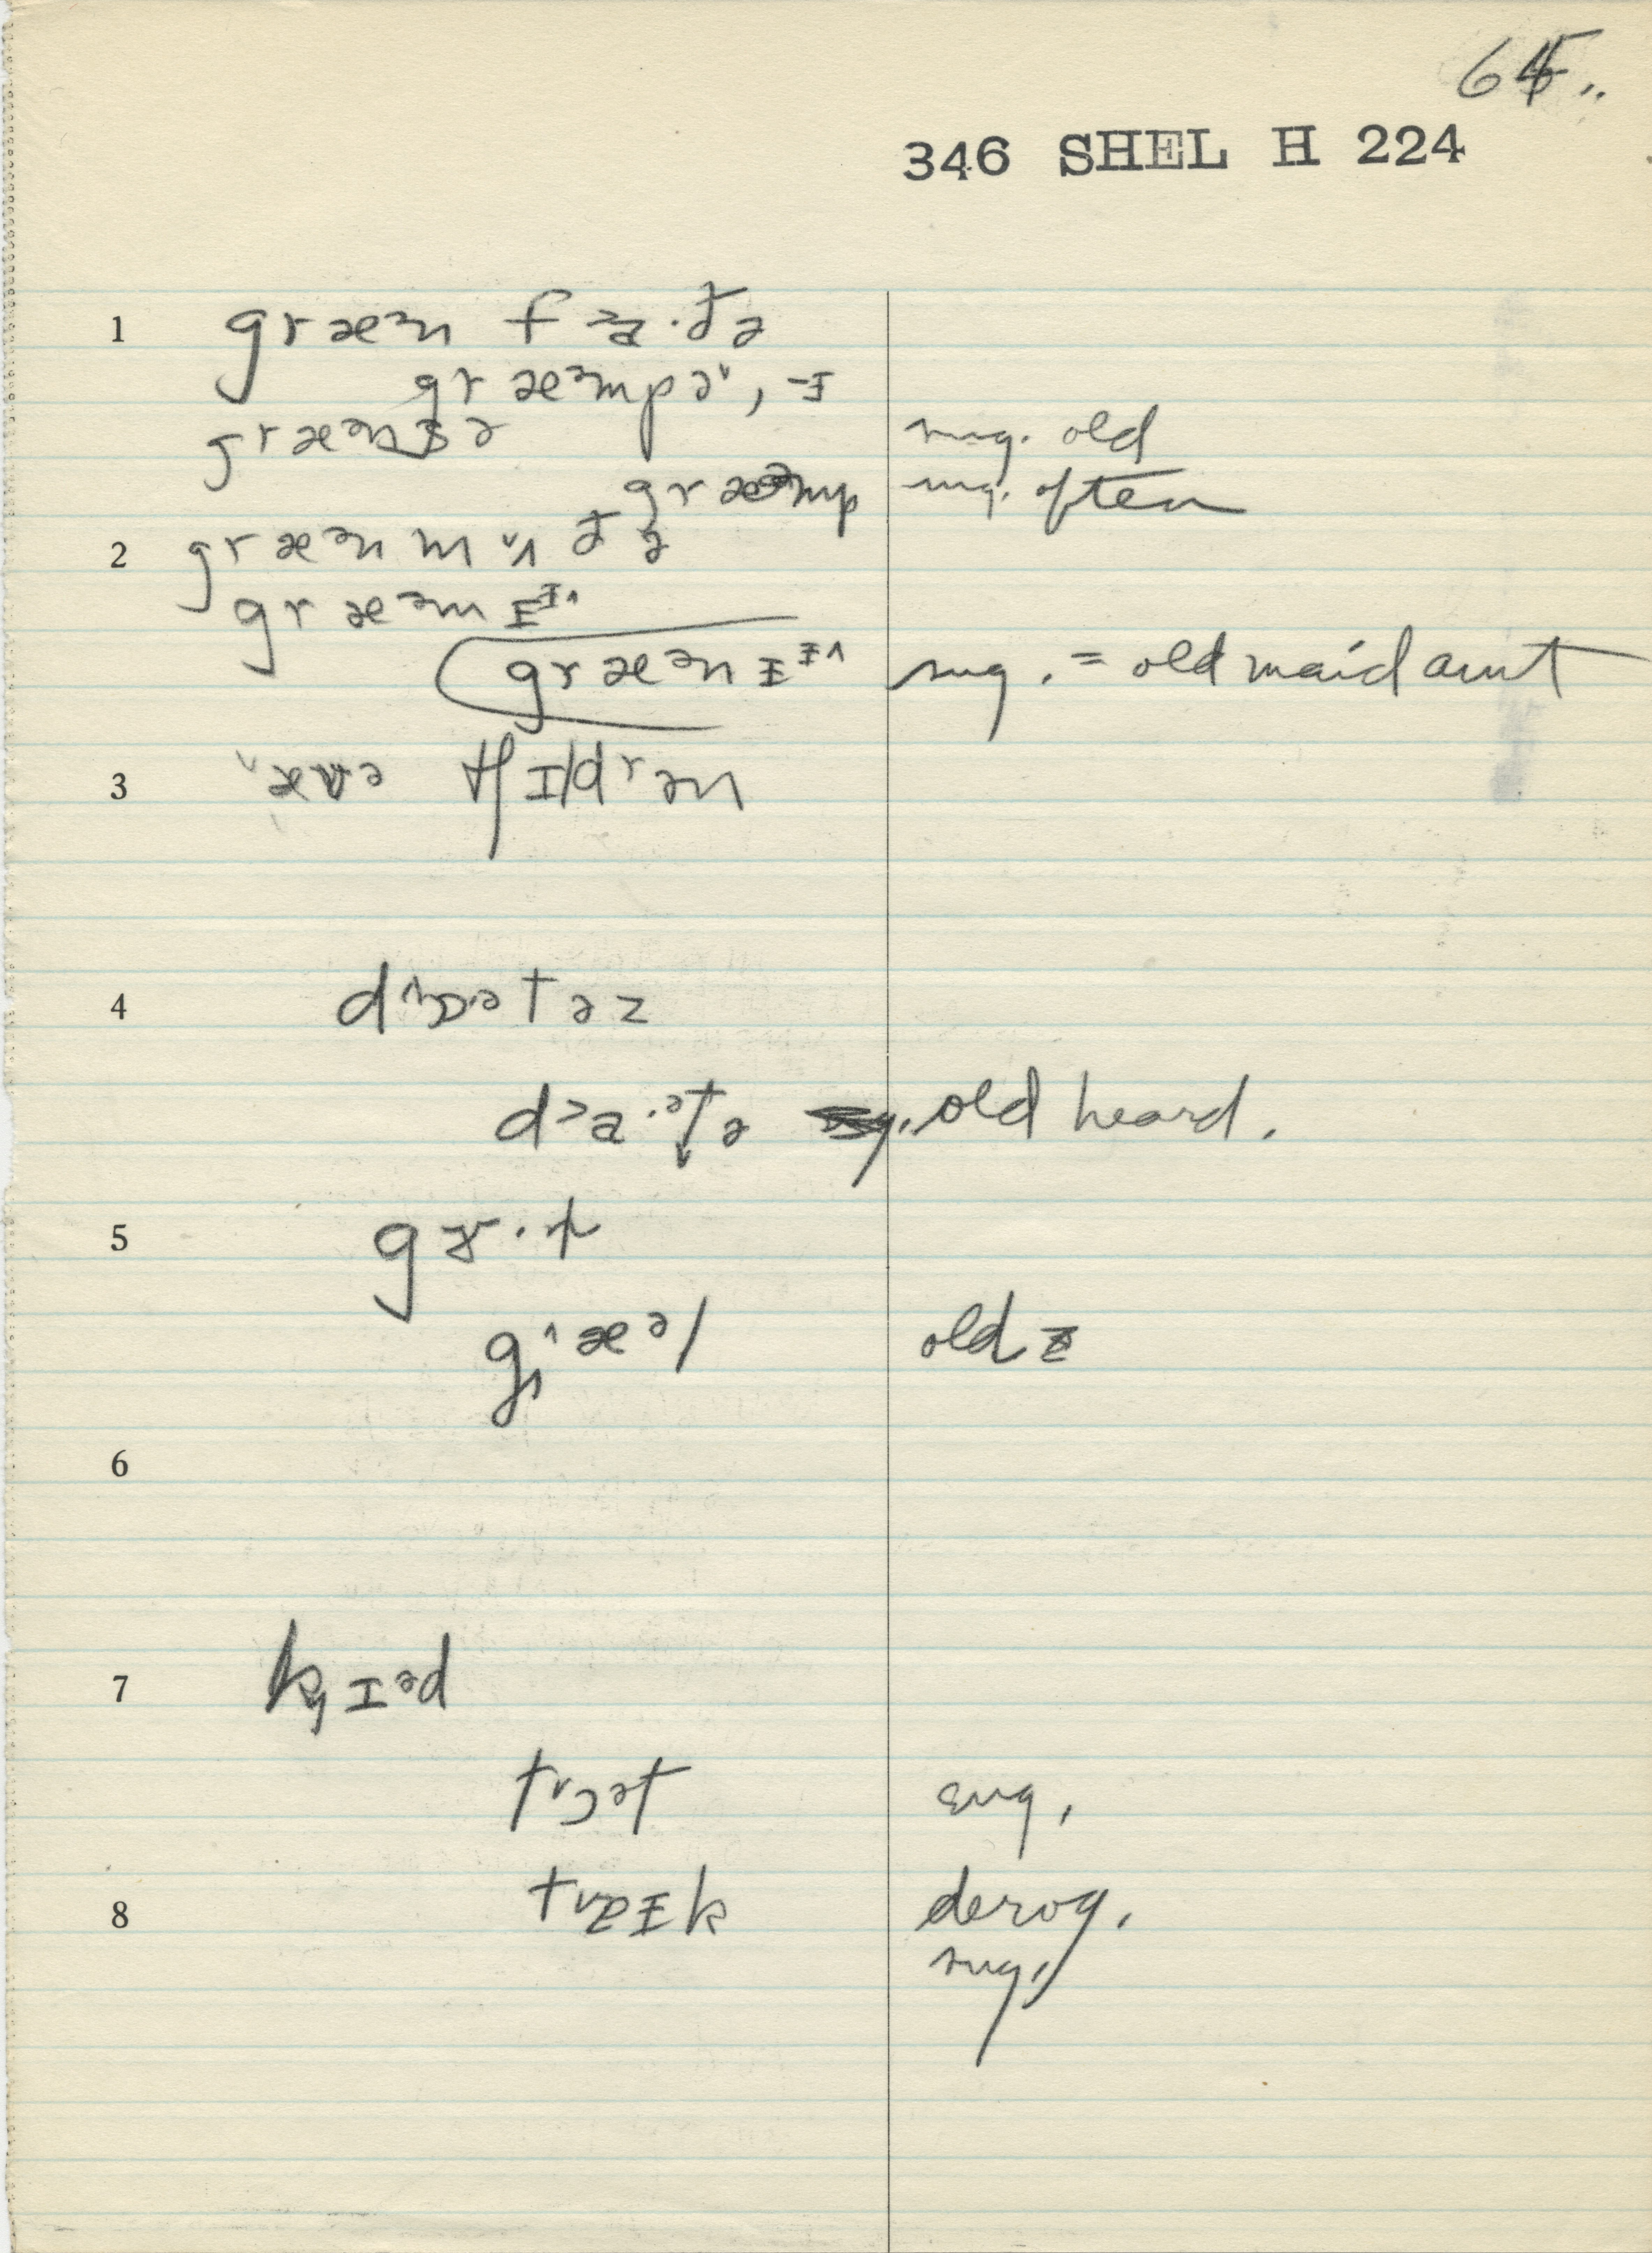 64..
346 SHEL H 224
1 græᵊn f>a·ðə
græᵊmpə˅, -ɪ
græᵊnsə sug. old
græᵊmp sug. often
2 græᵊn m ʌ ðə
græᵊmɪᶦ^
græᵊnɪᶦ^ sug. = old maid aunt
3 tʃɪldrən
4 dɔᵊtəz
d>a·ᵊtə old heard.
5 gɝ·l
gjæᵊl old
6
7 kɪᵊd
tɔᵊt sug.
8 tɐɪk derog.
sug.